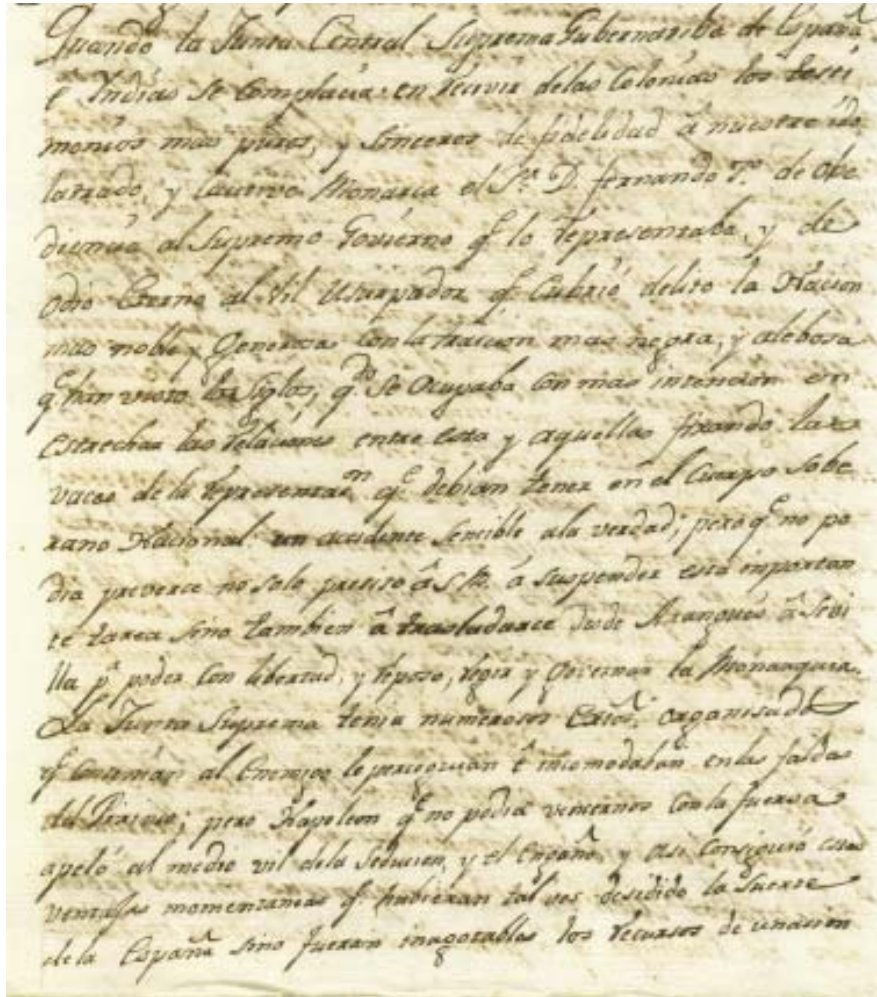 Quando la Junta Central Suprema Gubernariba de España
e Yndias se Complacia en recivir delas Colonias los testi
monios mas puros, y sinceros de fidelidad â nuestro ido
latrado, y Cautivo Monarca el Sr. D. fernando 7.º de obe
diencia al Supremo Govierno q.e lo representaba, y de
odio Eterno al vil Usurpador q.e Cubrió delito la Nacion
mas noble y Generosa con la traicion mas negra, y alebosa
q.e han visto los Siglos, q.do se Ocupaba con mas intencion en
estrechar las relaciones entre esta y aquellas fixando las
vaces de la representas.n q.e debian tener en el Cuerpo sobe
rano Nacional: un accidente sencible ala verdad; pero q.e no po
dia preverce no solo preciso â S.M. â suspender esta importan
te tarea sino tambien â trasladarce desde Aranques â Sevi
lla p.a poder con libertad, y reposo, regir y Governar la Monarquia.
La Junta Suprema tenia numerosos Extos. organisados
q.e Contenian al Enemigo le perseguian ê incomodaban en las faldas
del Pirineo; pero Napoleon q.e no podia vencernos con la fuerza
apeló al medio vil dela Seducion, y el Engaño, y asi Consiguió esas
ventajas momentaneas q.e hubieran tal ves desidido la Suerte
de la España sino fueran inagotables los recursos de unacion